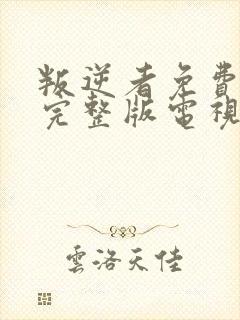 叛逆者免費
完整版電視
雲洛天佳